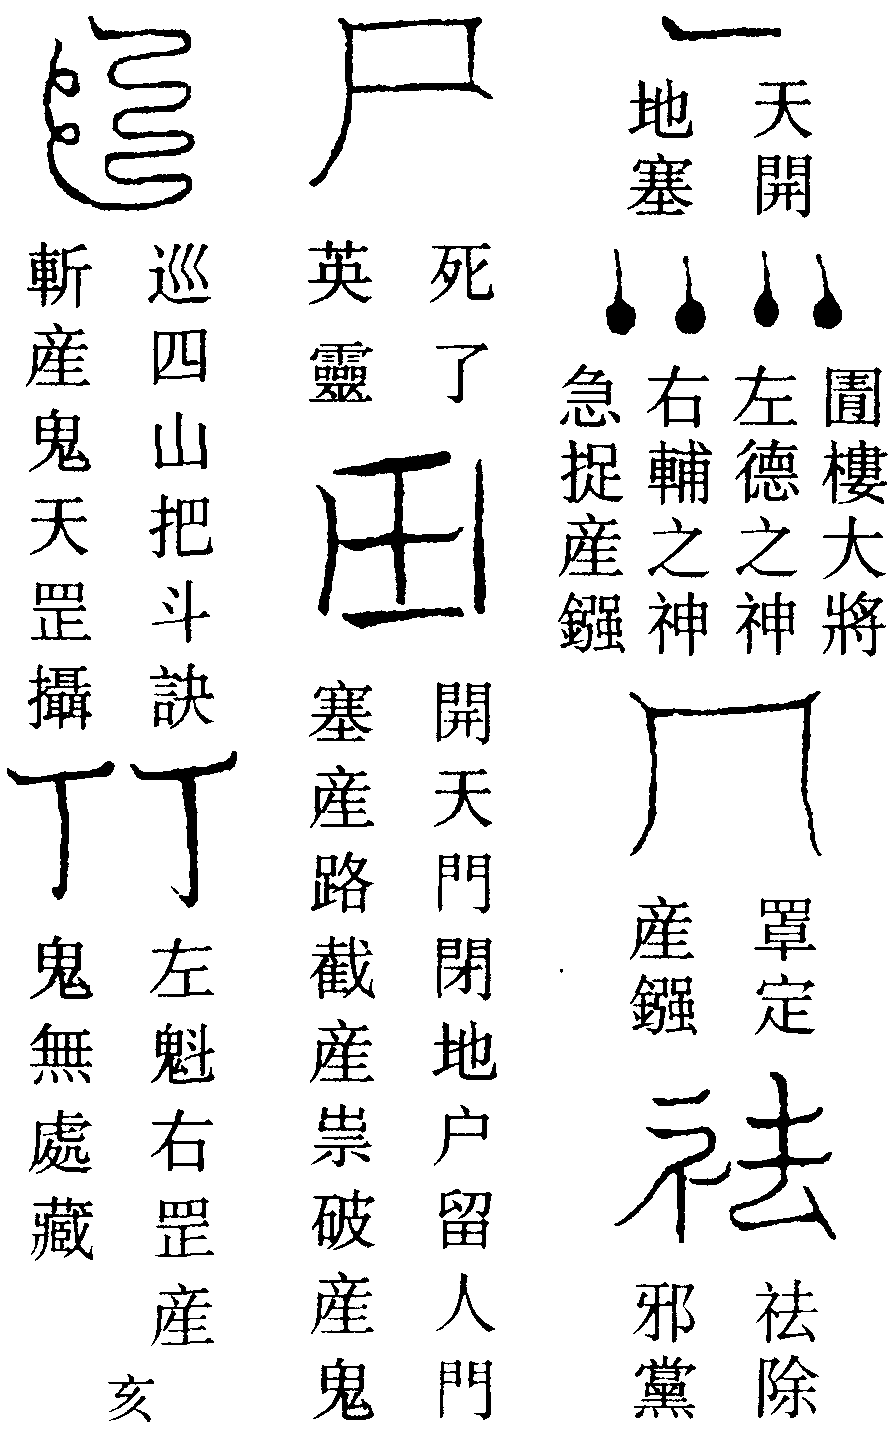 天開
地塞
圊樓大將
左德之神
右輔之神
急捉産鏹
罩定
産鏹
祛
祛除
邪黨
尸
死了
英靈
開天門閉地户留人門
塞産路截産祟破産鬼
巡四山把斗訣
斬産鬼天罡攝
丁丁
左魁右罡産
鬼無處藏
亥